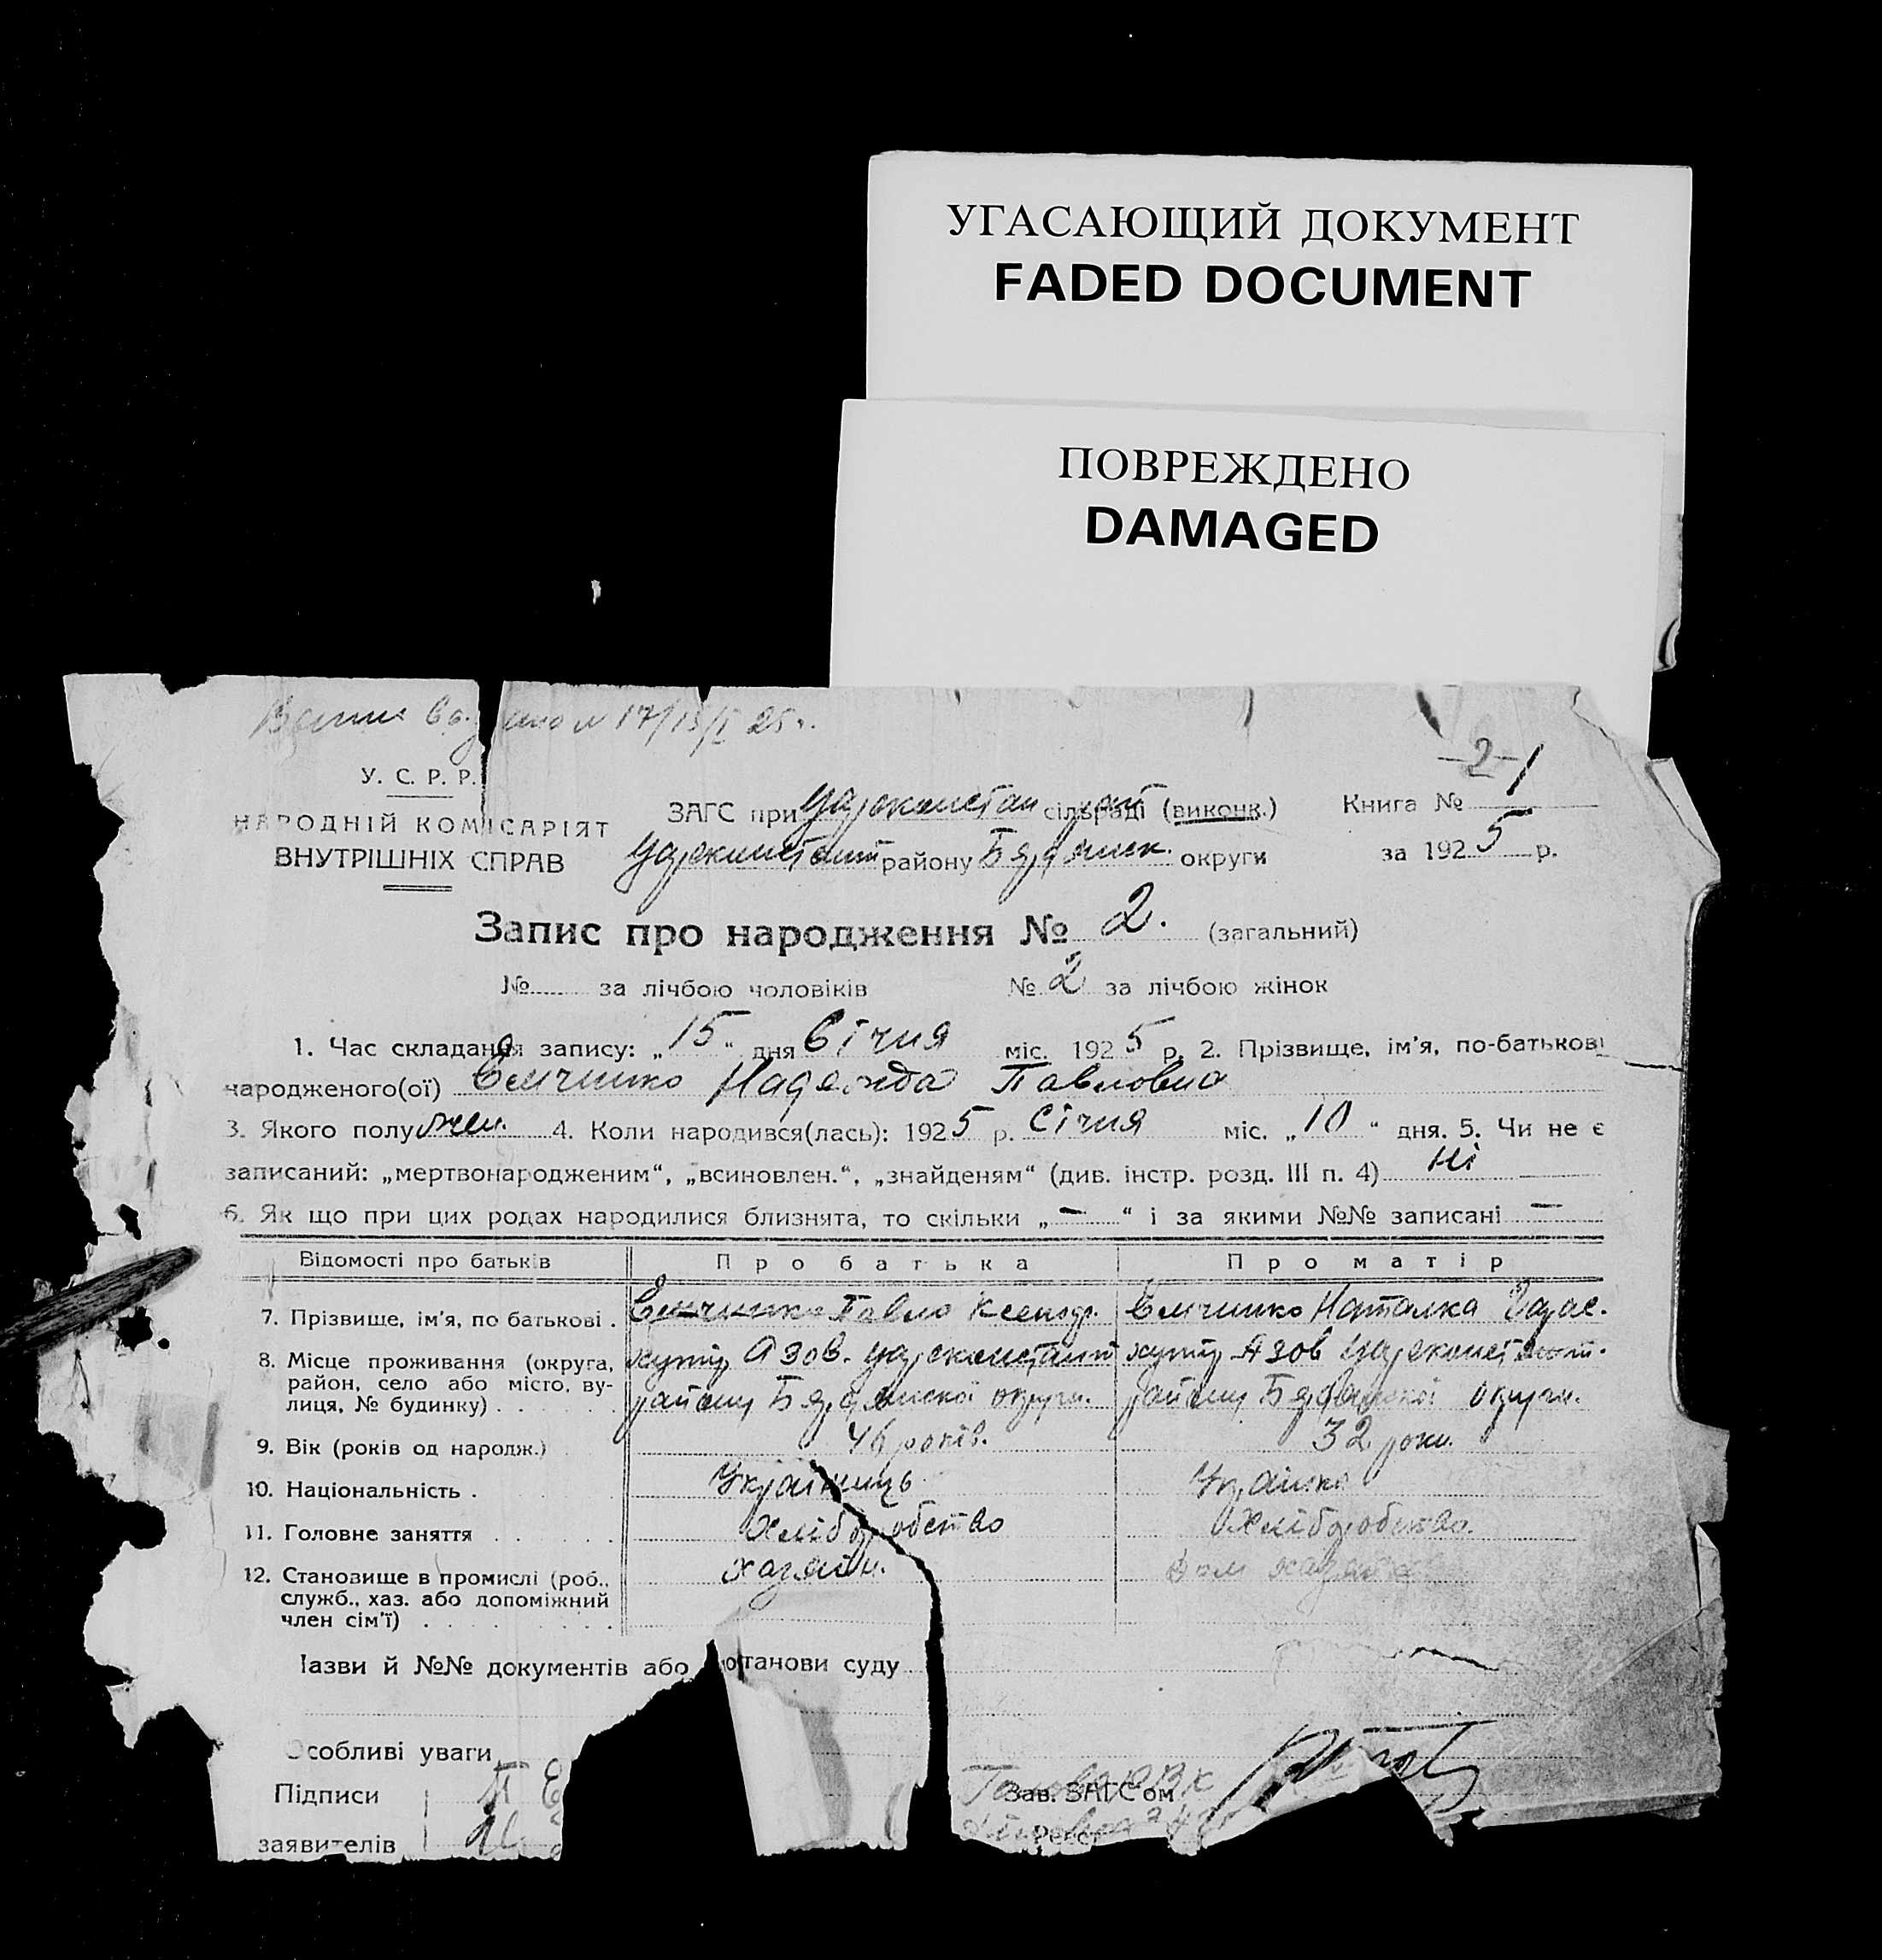 УГАСАЮЩИЙ ДОКУМЕНТ
FADED DOCUMENT
ПОВРЕЖДЕНО
DAMAGED
17/15/I 25 г.
-2-
У. С. Р. Р.
НАРОДНІЙ КОМІСАРІЯТ
ВНУТРІШНІХ СПРАВ
ЗАГС при Цареконстан сільраді (виконк.) Книга №
Цареконстант району Бердянськ. округи за 1925 р.
Запис про народження № 2. (загальний)
№ за лічбою чоловіків № 2 за лічбою жінок
1. Час складання запису: „15“ дня Січня міс. 1925 р. 2. Прізвище, ім'я, по-батькові
народженого(ої) Надежда Павловна
3. Якого полу жен. 4. Коли народився(лась): 1925 р. Січня міс. „10“ дня. 5. Чи не є
записаний: „мертвонародженим“, „всиновлен.“, „знайденям“ (див. інстр. розд. III п. 4) Ні
6. Як що при цих родах народилися близнята, то скільки „—“ і за якими №№ записані —
Відомості про батьків Про батька Про матір
7. Прізвище, ім'я, по батькові . Павло Наталка
8. Місце проживання (округа, хутір Азов. Царсконстант хутір Азов Царсконстант.
район, село або місто, ву-
лиця, № будинку) району Бердянської округи. району Бердянської округи.
9. Вік (років од народж.) 46 років. 32 роки.
10. Національність . Українець Українка
11. Головне заняття Хліборобство Хліборобство.
12. Становище в промислі (роб., хазяїн. дом хазяйка
служб., хаз. або допоміжний
член сім'ї)
Назви й №№ документів або постанови суду
Особливі уваги
Підписи
заявителів
Голова РВК
Зав. ЗАГС'ом
Реєст